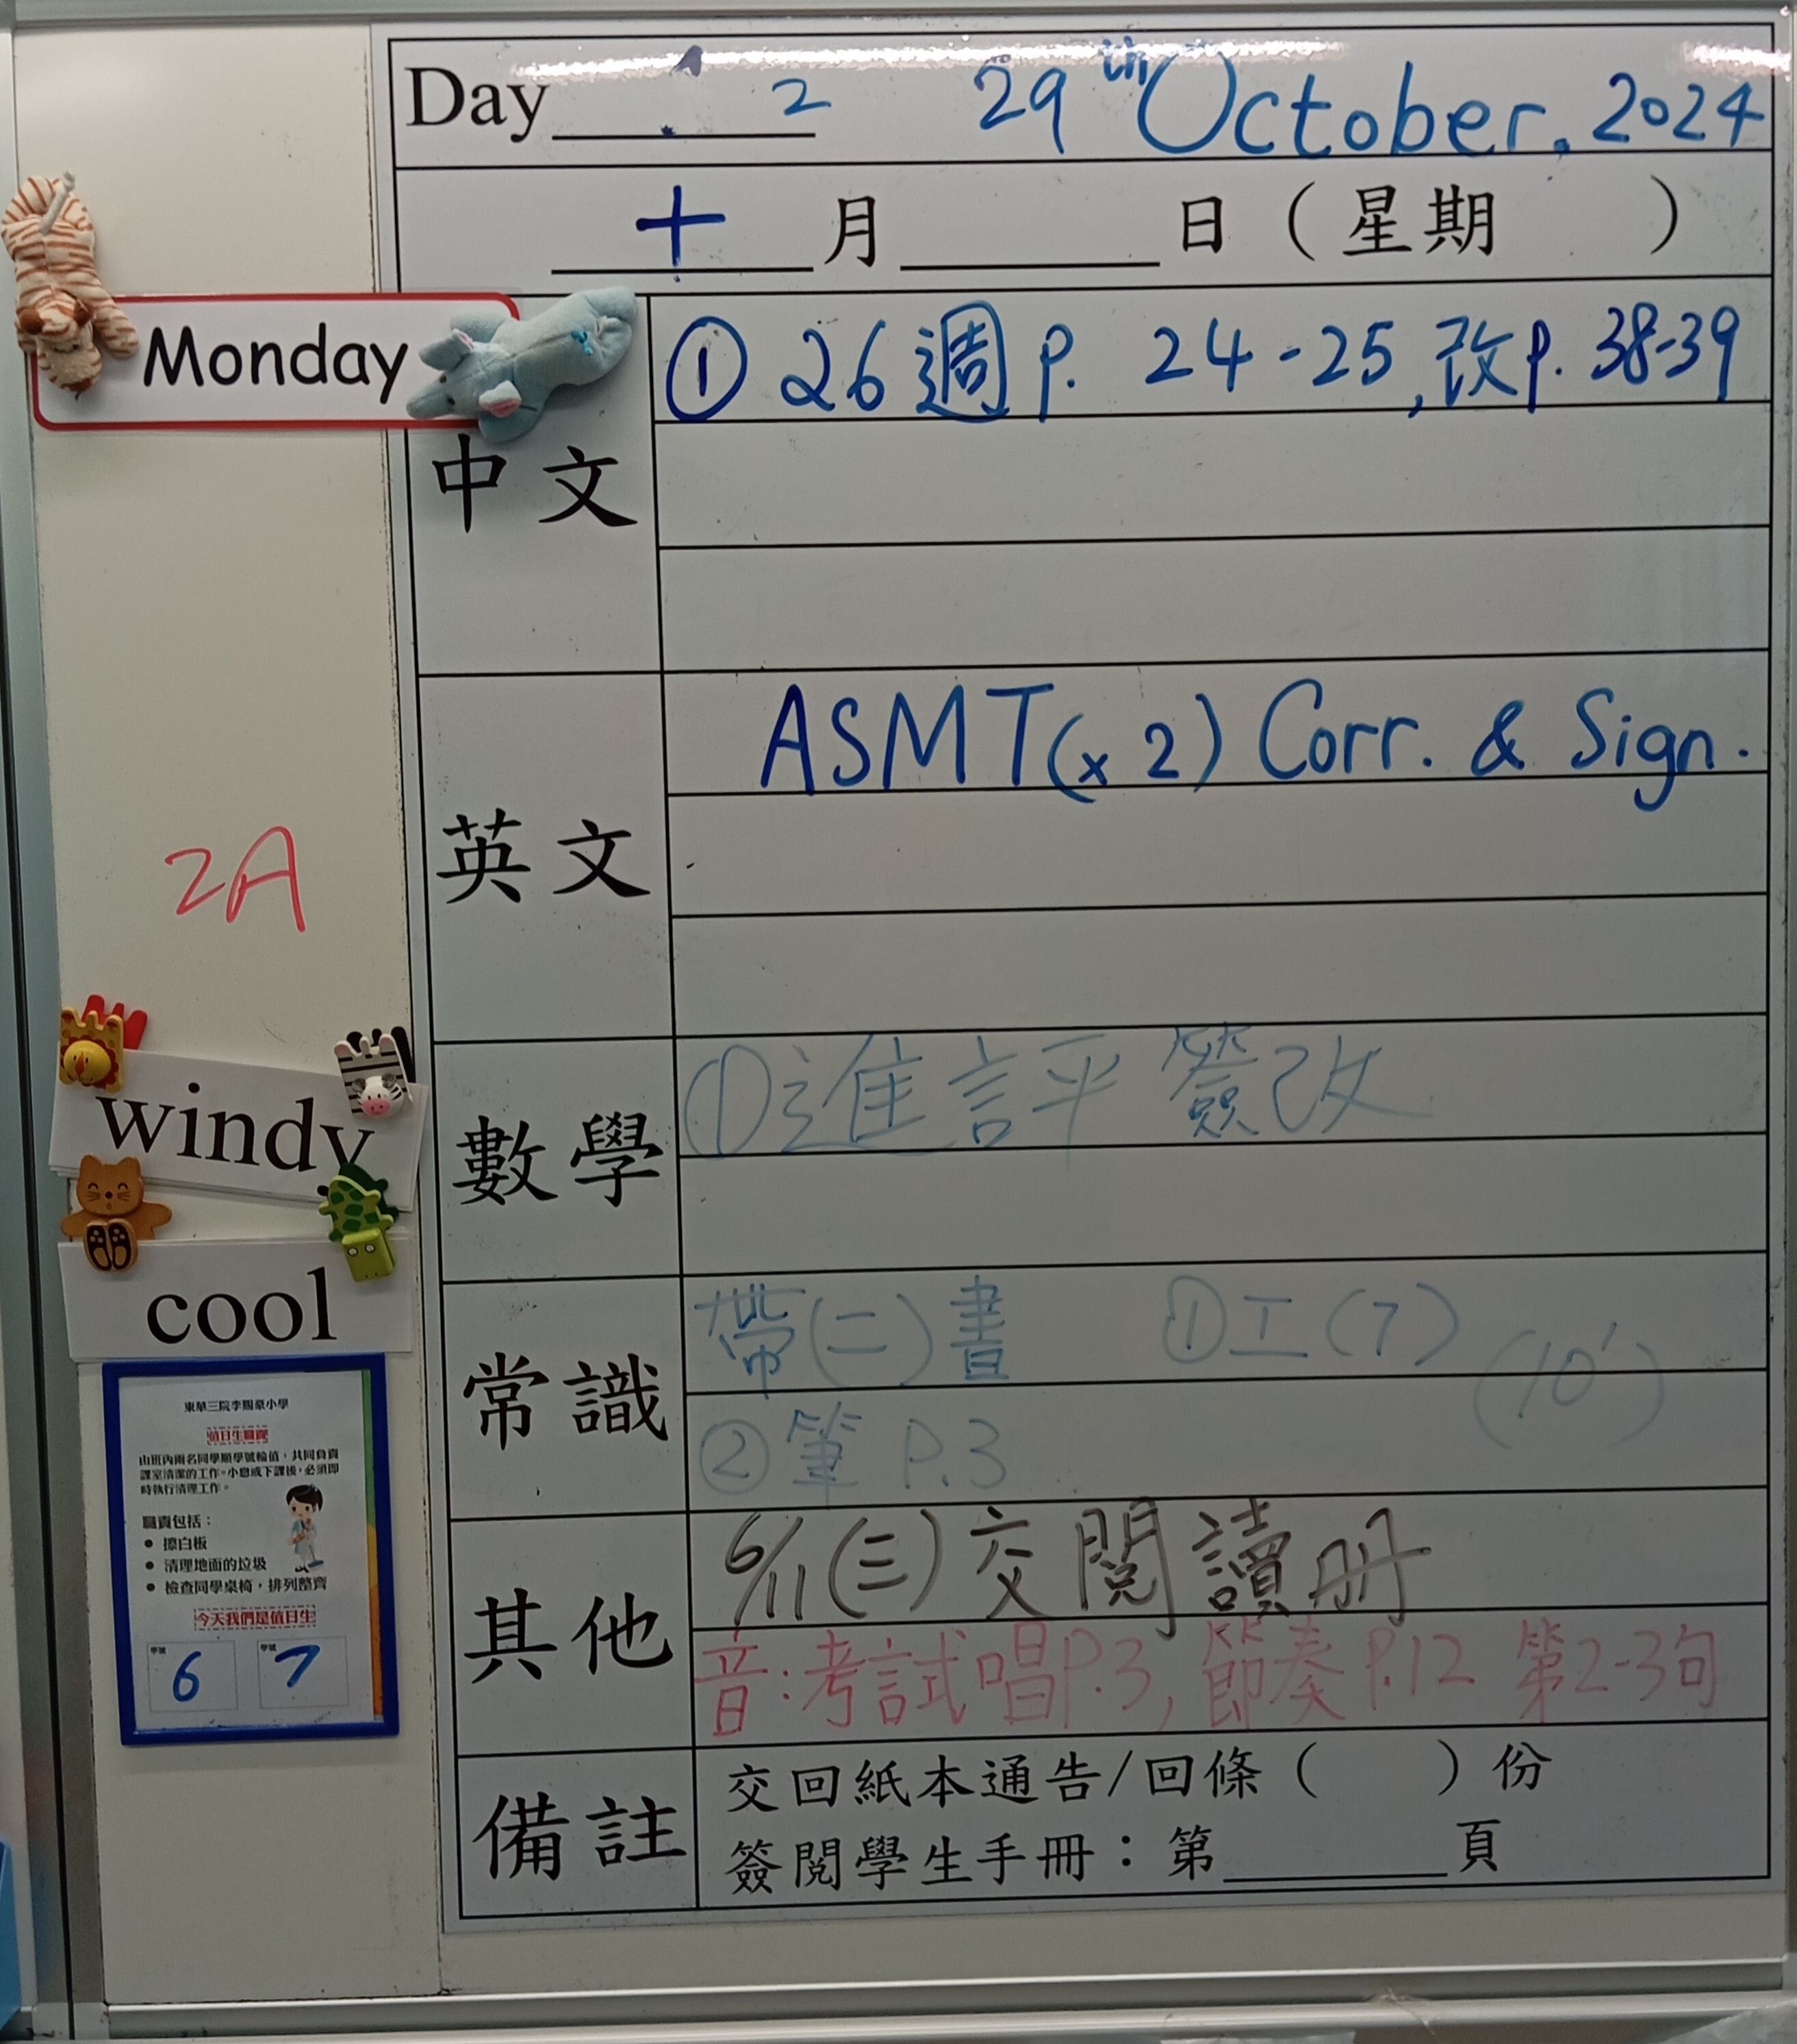 Day 2 29th October, 2024
十 月 日 ( 星期 )
Monday
中文
① 26週 p. 24-25, 改p. 38-39
英文
ASMT(x 2) Corr. & Sign.
2A
數學
①進評簽改
windy
cool
常識
帶(二)書 ①工(7)
(10')
②筆 P.3
其他
6/11(三)交閱讀册
音:考試唱P.3, 節奏P.12 第2-3句
備註
交回紙本通告/回條( )份
簽閱學生手冊:第 頁
東華三院李賜豪小學
值日生職責
由班內兩名同學順學號輪值,共同負責
課室清潔的工作。小息或下課後,必須即
時執行清理工作。
職責包括:
• 擦白板
• 清理地面的垃圾
• 檢查同學桌椅,排列整齊
今天我們是值日生
學號 學號
6 7